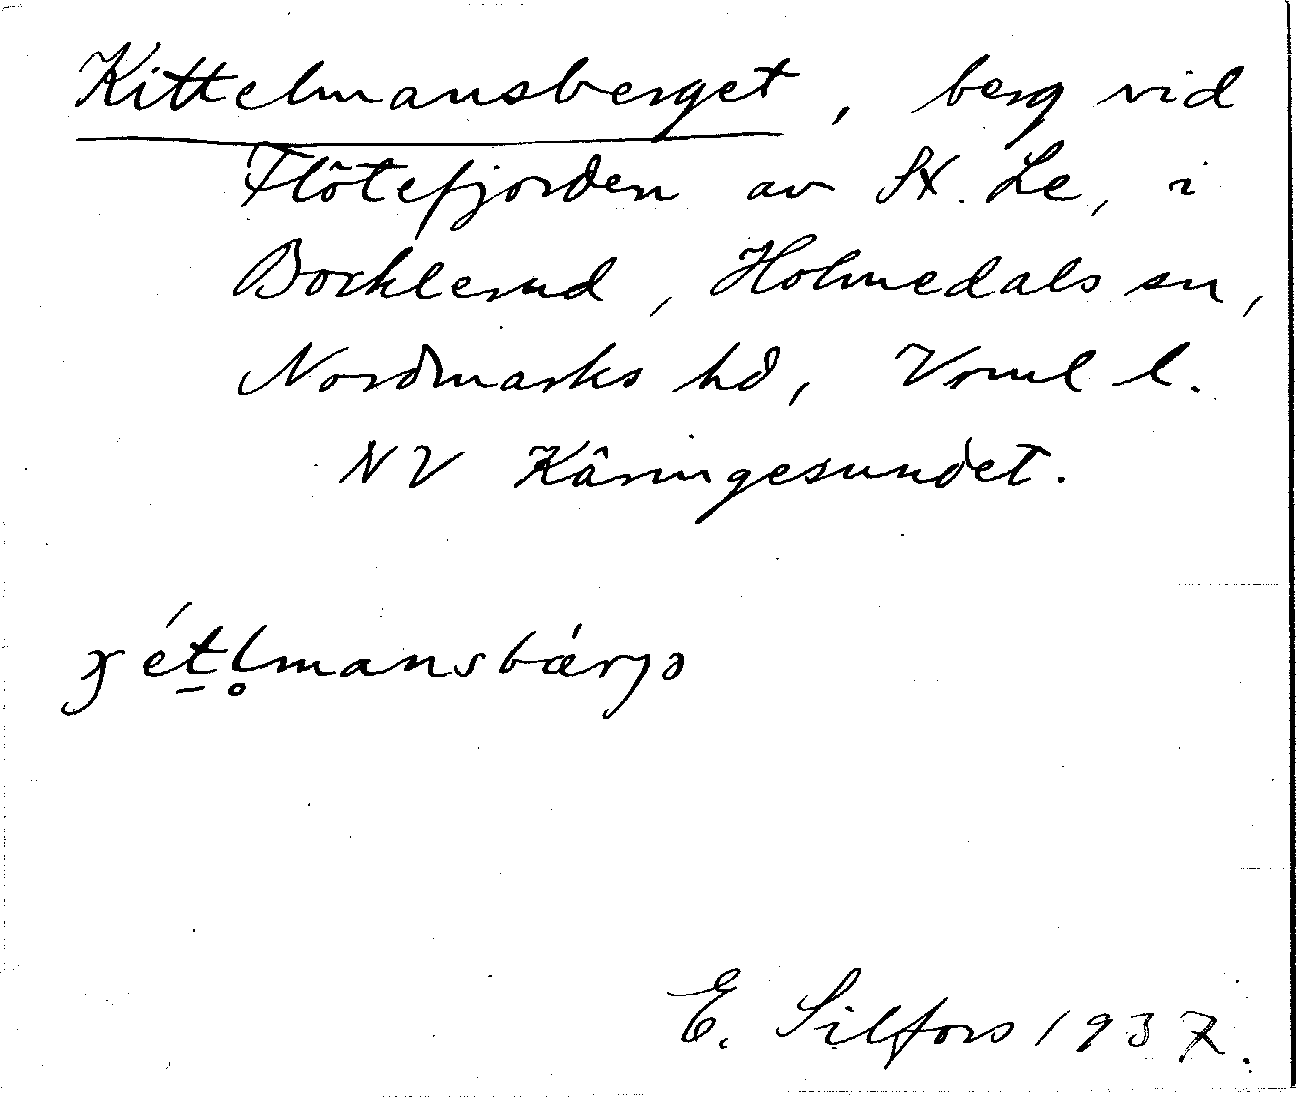 Kittelmansberget, berg vid
Flötefjorden av St. Le, i
Bocklerud, Holmedals sn,
Nordmarks hd, Vrml l.
NV Käringesundet.
ét̲l̥mansbærjə
E. Silfors 1937.